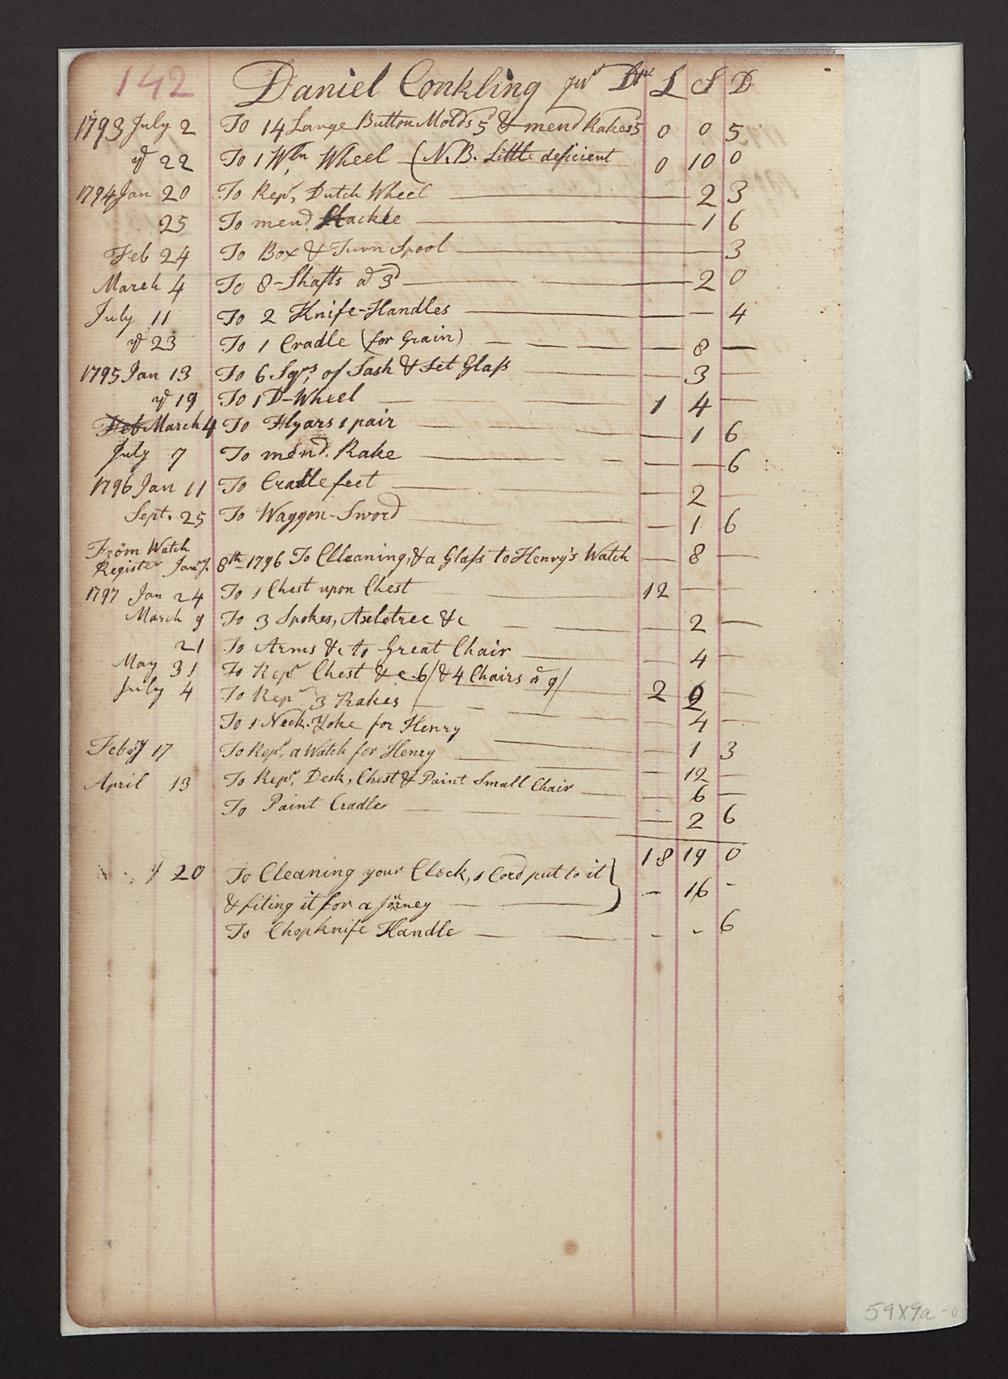 142 Daniel Conkling Junr Dtr L S D
1793 July 2 To 14 Large Button Molds 5 & mend Rakes 5 0 0 5
yd 22 To 1 Wln Wheel (N.B. Little deficient 0 10 0
1794 Jan 20 To Repr. Dutch Wheel — 2 3
25 To mend Hackle — 1 6
Feb 24 To Box & Turn Spool — 3
March 4 To 8-Shafts a 3d — 2 0
July 11 To 2 Knife-Handles — — 4
yd 23 To 1 Cradle (for Grain) — 8 —
1795 Jan 13 To 6 Sqrs, of Sash & Set Glass — 3 —
yd 19 To 1 D-Wheel — 1 4 —
Feb March 4 To Flyars 1 pair — 1 6
July 7 To mend Rake — — 6
1796 Jan 11 To Cradle feet — 2 —
Sept. 25 To Waggon-Sword — 1 6
From Watch
Register Jany. 8th 1796 To Cleaning, & a Glass to Henry's Watch — 8 —
1797 Jan 24 To 1 Chest upon Chest 12 — —
March 9 To 3 Spokes, Axletree &c — 2 —
21 To Arms &c to Great Chair — 4 —
May 31 To Repr Chest &c 6/ & 4 Chairs a 9/ 2 2
July 4 To Repr 3 Rakes — 4 —
To 1 Neck-Yoke for Henry — 1 3
Feby 17 To Repr, a Watch for Henry — 12 —
April 13 To Repr, Desk, Chest & Paint Small Chair — 6 —
To Paint Cradle — 2 6
18 19 0
yd 20 To Cleaning your Clock, 1 Cord put to it
& fiting it for a Jorney — 16 -
To Chopknife Handle — - - 6
59x9a